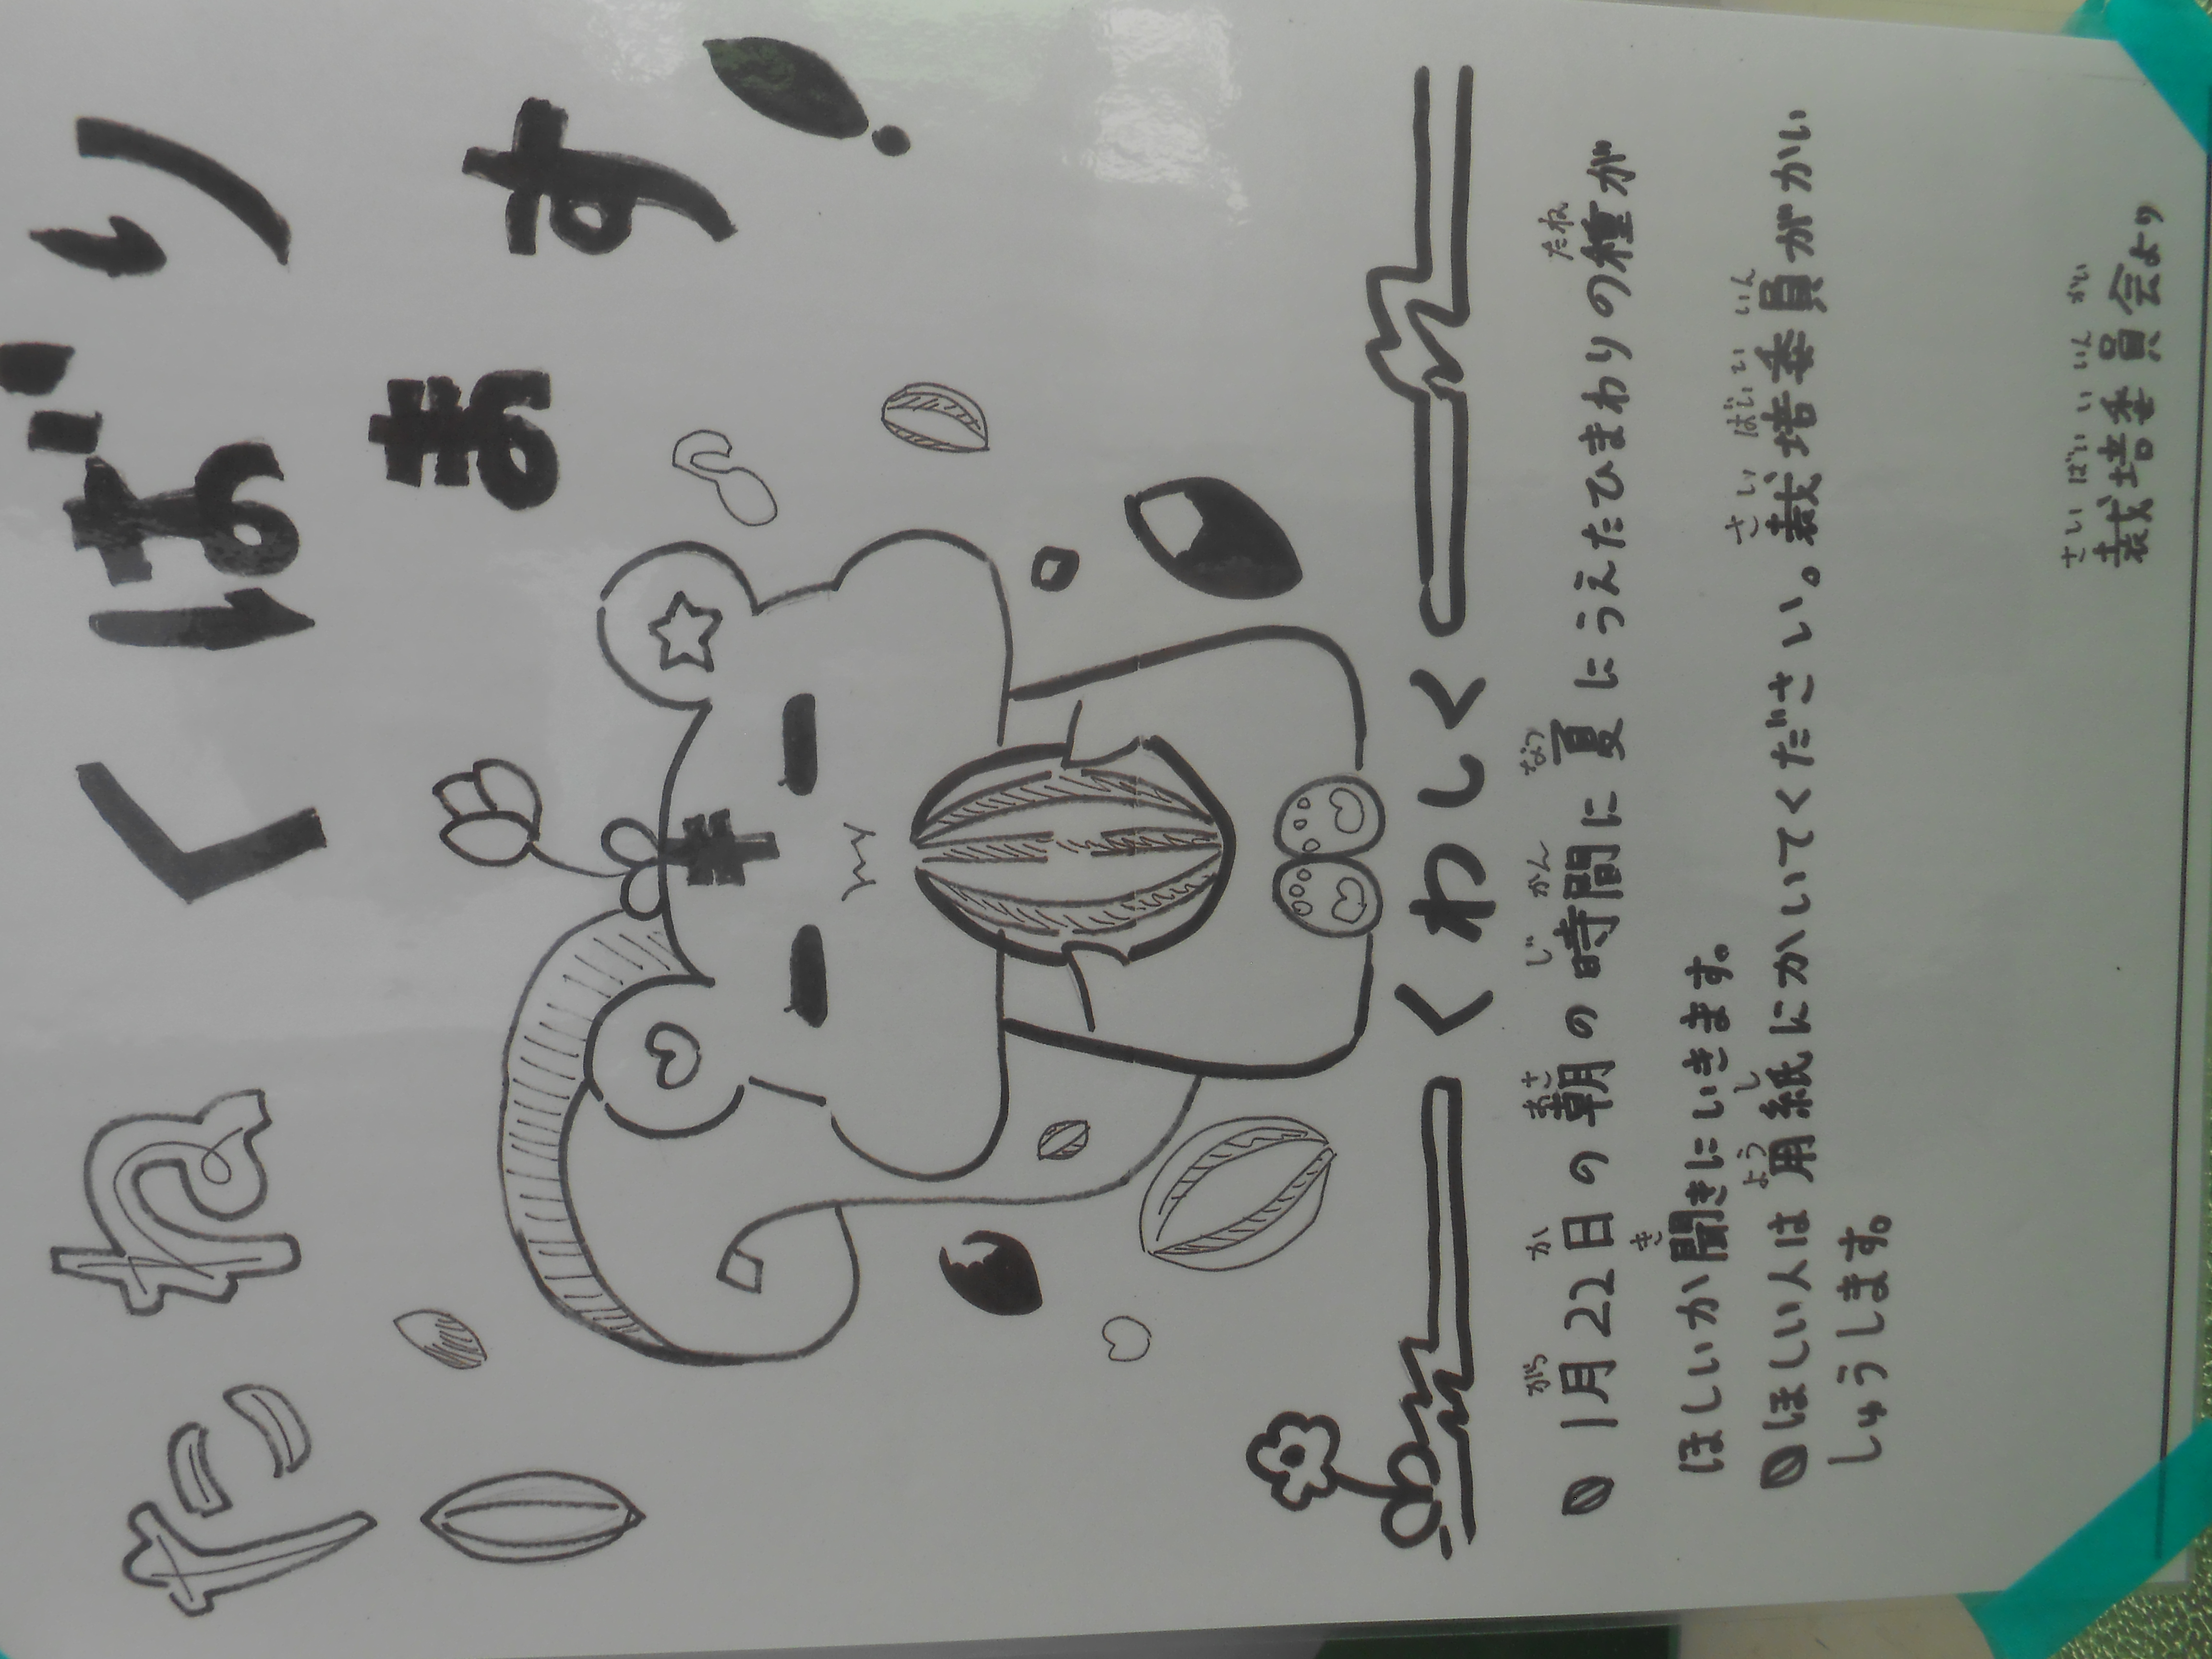 たねくばり
ます!
くわしく
1月22日の朝の時間に夏にうえたひまわりの種が
ほしいか聞きにいきます。
ほしい人は用紙にかいてください。栽培委員がかい
しゅうします。
栽培委員会より